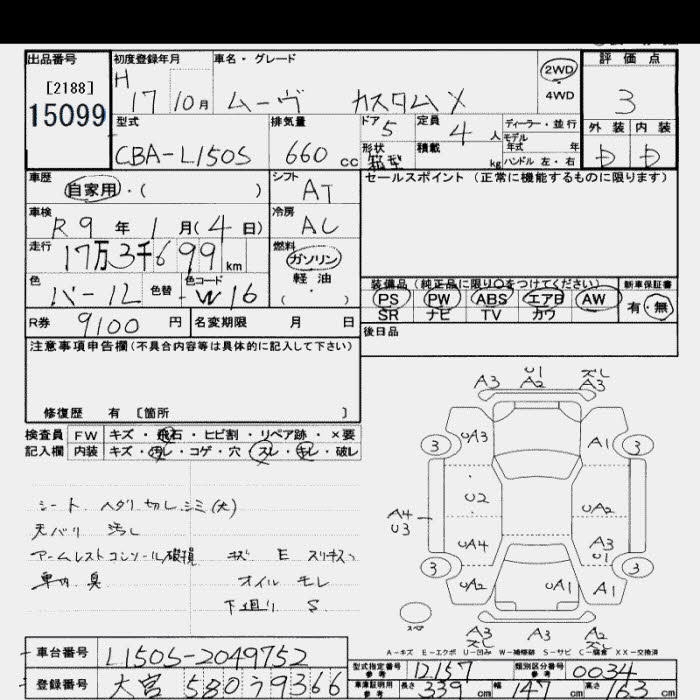 出品番号 初度登録年月 車名・グレード 2WD 評価点
[2188] H 4WD
15099 17 10月 ムーヴ カスタムX 3
型式 排気量 ドア 5 定員 4人 ディーラー・並行 外装 内装
モデル年式 年
CBA-L150S 660 cc 形状 箱型 積載 kg ハンドル 左・右 D D
車歴 シフト セールスポイント(正常に機能するものに限ります)
自家用・( ) AT
車検 冷房
R9年 1月(4日) AC
走行 燃料
17万3千699km ガソリン
軽油
色 色替 色コード ( ・ ) 装備品(純正品に限り○をつけてください) 新車保証書
パール W16 PS PW ABS エアB AW 有・無
SR ナビ TV カワ
R券 9100円 名変期限 月 日 後日品
注意事項申告欄(不具合内容等は具体的に記入して下さい)
修復歴 有 〔箇所 〕
検査員 FW キズ・飛石・ヒビ割・リペア跡・×要
記入欄 内装 キズ・汚レ・コゲ・穴 スレ・キレ・破レ
シート ヘタリ 切レ シミ(大)
天バリ 汚レ
アームレストコンソール破損 キズ E スリキズ
車内 臭 オイル モレ
下廻り S
A3 U1 A2 ズレ A3
3 UA3 A1 3
U2 UA2
A4 U3
UA4 A3 U1
3 UA2 UA1 A1 3
スペア A3 A3 A2
A-キズ E-エクボ U-凹み W-補修跡 S-サビ C-腐食 XX-交換済
車台番号 L150S-2049752 型式指定番号 参考 12157 類別区分番号 参考 0034
登録番号 大宮 580 う 9366 車庫証明用 参考 長さ 339cm 幅 147cm 高さ 163cm